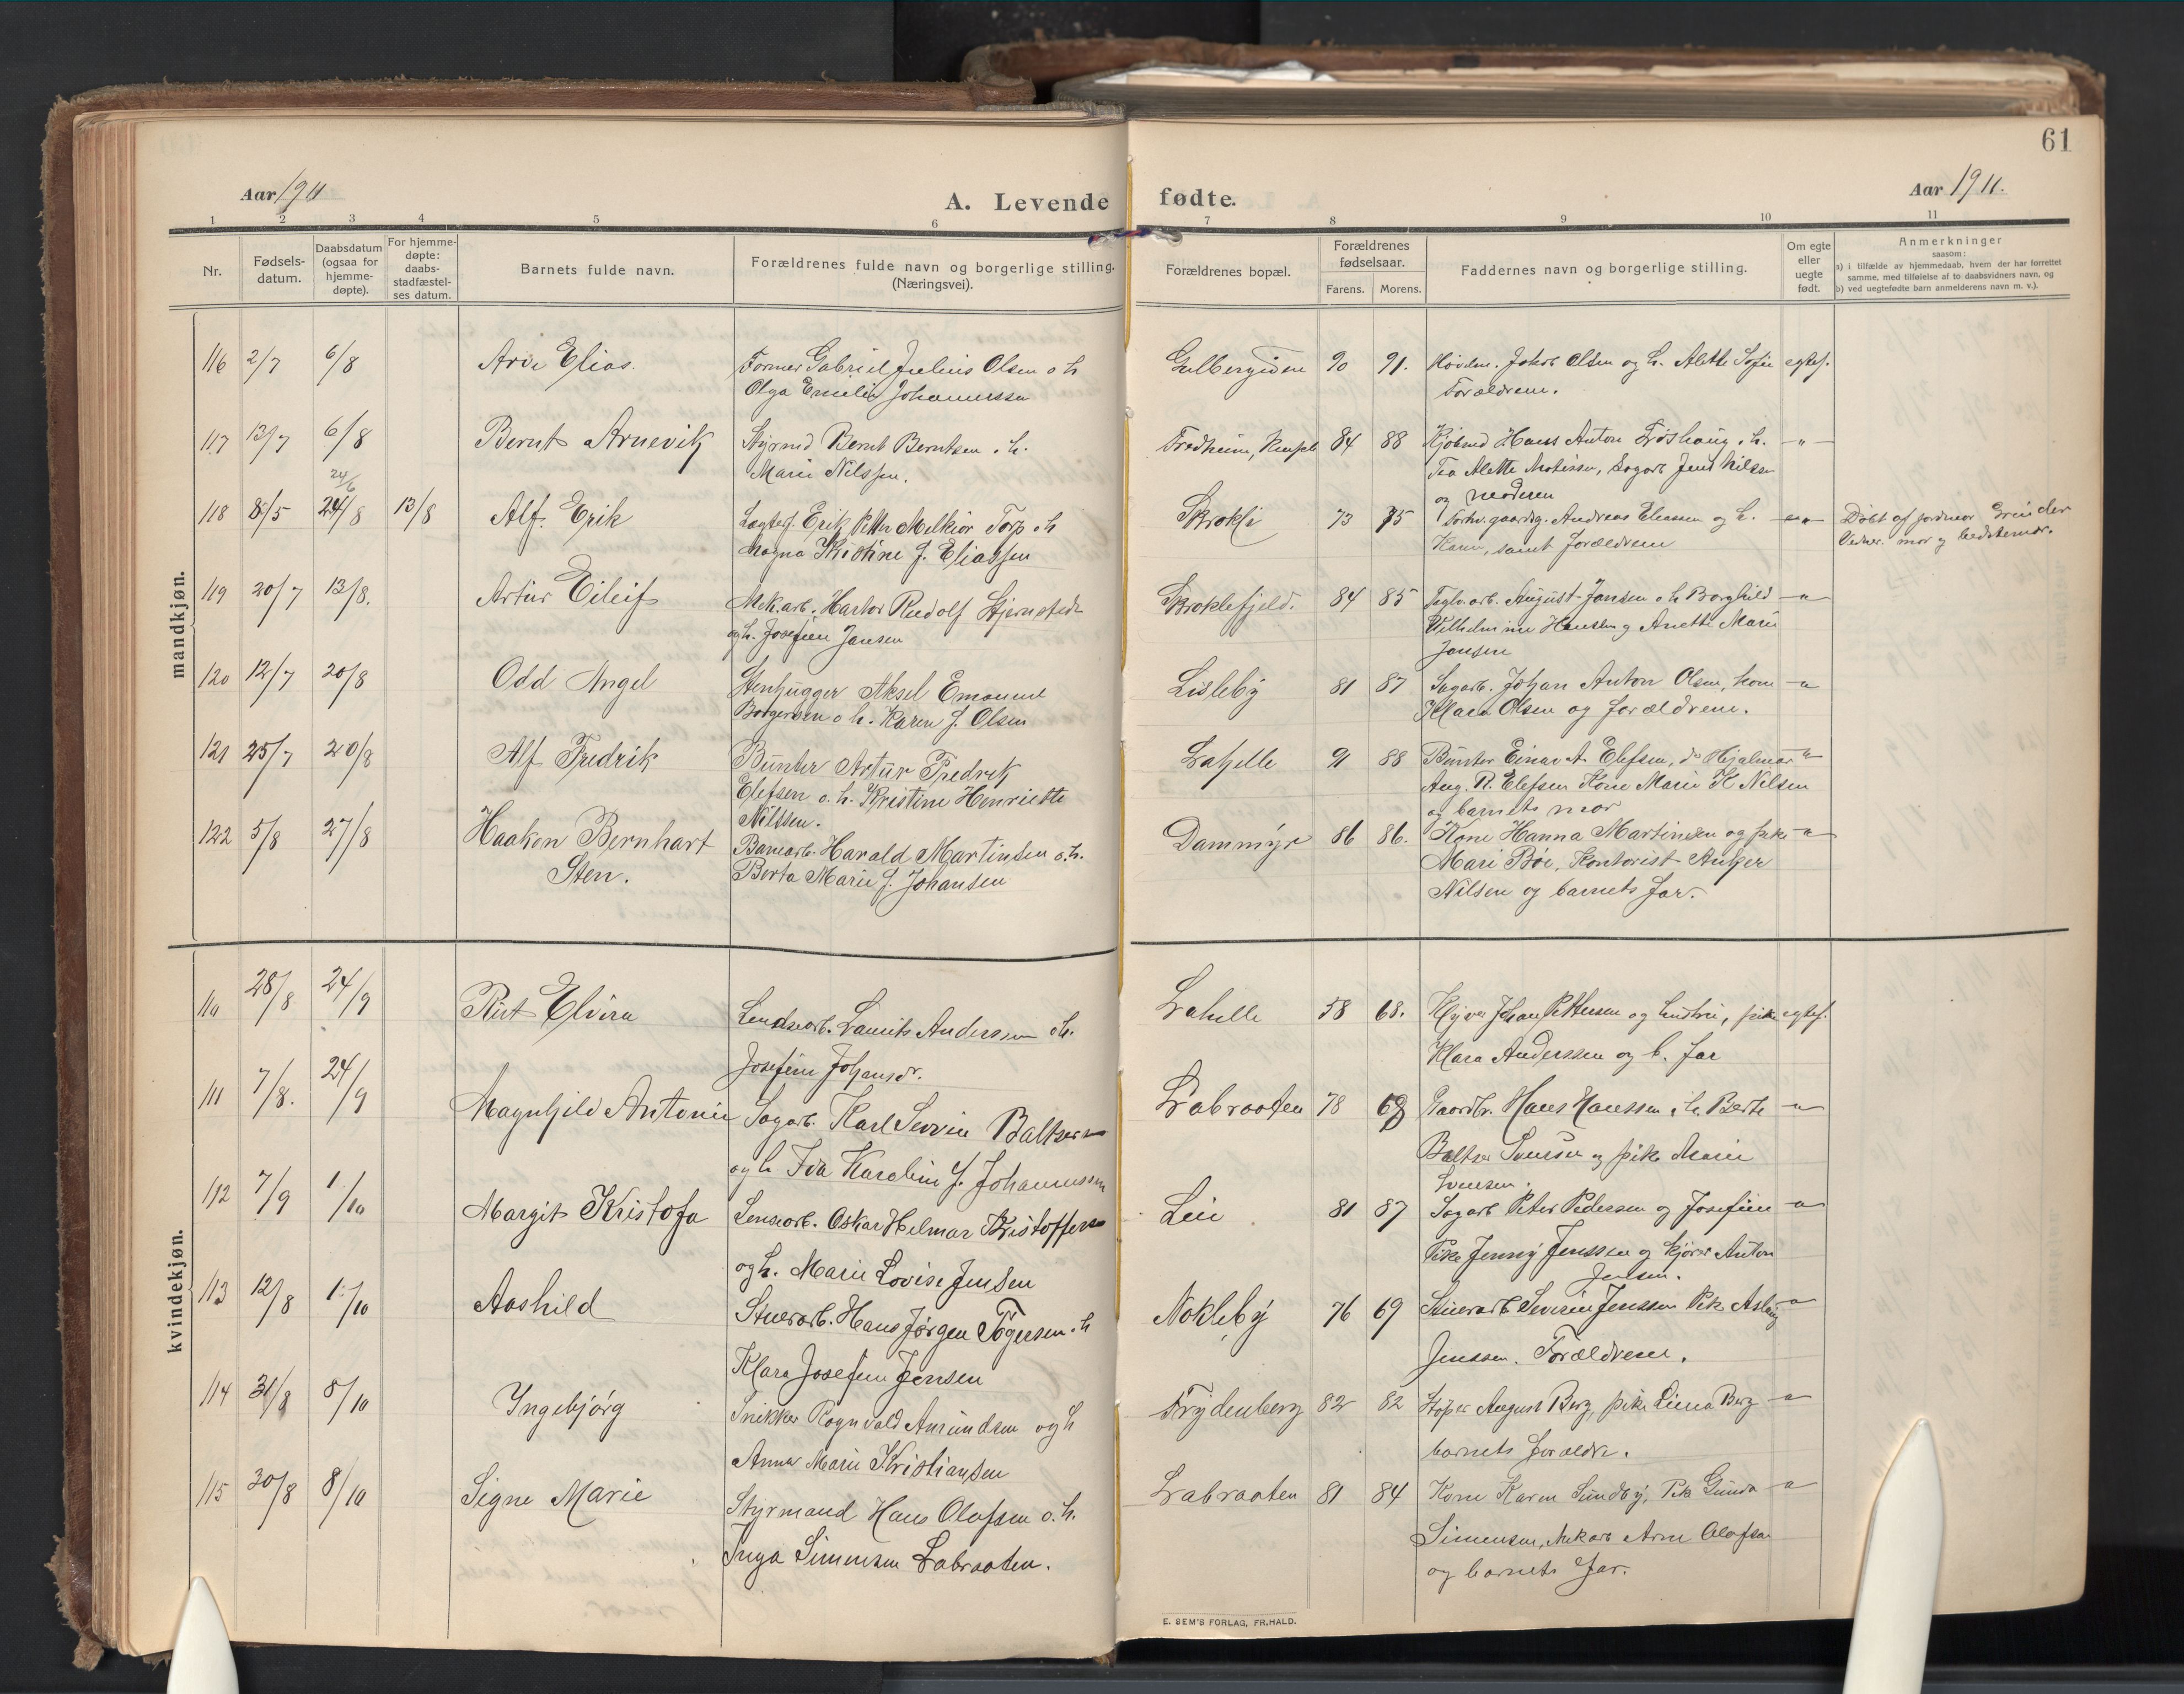 61
Aar 1911
A. Levende fødte.
Aar 1911.
1 2 3 4 5 6 7 8 9 10 11
Nr.
Fødsels-
datum.
Daabsdatum
(ogsaa for
hjemme-
døpte).
For hjemme-
døpte:
daabs-
stadfæstel-
ses datum.
Barnets fulde navn.
Forældrenes fulde navn og borgerlige stilling.
(Næringsvei).
Forældrenes bopæl.
Forældrenes
fødselsaar.
Farens. Morens.
Faddernes navn og borgerlige stilling.
Om egte
eller
uegte
født.
Anmerkninger
saasom:
a) i tilfælde av hjemmedaab, hvem der har forrettet
samme, med tilføielse af to daabsvidners navn, og
b) ved uegtefødte barn anmelderens navn m. v.).
mandkjøn.
116 2/7 6/8 Arve Elias. Former Gabriel Julius Olsen o h
Olga Emilie Johannessen
Gulbergiden 90 91. Høvlem. Jakob Olsen og h. Alette Sofie egtef.
Forældrene.
117 13/7 6/8 Bernt Arnevik Styrmd Bernt Berntsen o. h.
Marie Nilssen.
84 88 Kjøbmd Hans Anton Frøshaug o. h. -"-
Tea Alette Mathisen, Sagarb Jens Nilsen
og moderen
24/6
118 8/5 24/8 13/8 Alf Erik Lægtesj. Erik Petter Melkior Torp o h
Magna Kristine f. Eliassen
Skrokli 73 75 Forhv. gaardsg. Andreas Eliassen og h. -"-
Karen, samt forældrene
Døbt af jordmor Grinder
Vidner. mor og bedstemor.
119 20/7 13/8. Artur Eileif Mek.arb. Hartor Rudolf Stjernstedt
og h. Josefine Jansen
Skroklefjeld. 84 85 Teglv.arb. August Jansen o h Borghild -"-
Vilhelmine Hansen og Anette Marie
Jansen
120 12/7 20/8 Odd Angel Stenhugger Aksel Emanuel
Borgersen o h. Karen f. Olsen
Lisleby 81 87 Sagarb. Johan Anton Olsen, kone -"-
Klara Olsen og forældrene.
121 25/7 20/8 Alf Fredrik Buntm Artur Fredrik
Elefsen o. h. Kristine Henriette
Nilssen.
Lahelle 91 88 Einar A. Elefsen, do Hjalmar -"-
Aug. R. Elefsen Kone Marie K Nilsen
og barnets mor
122 5/8 27/8 Haakon Bernhart
Sten.
Banearb. Harald Martinsen o. h.
Berta Marie f. Johansen
Dammyr 86 86. Kone Hanna Martinsen og pike -"-
Mari Bøe, Kontorist Ansgar
Nilsen og barnets far.
kvindekjøn.
110 28/8 24/9 Rut Elvira Lendsearb. Laurits Anderssen o h.
Josefine Johansdr.
Lahelle 58 68. Johan Pettersen og hustru, pike egtef.
Klara Anderssen og b. far
111 7/8. 24/9 Magnhild Antonie Sagarb. Karl Severin Baltsersen
og h Ida Karoline f. Johannessen
Labraaten 78 68 Gaardbr. Hans Hanssen o. h. Berte -"-
Baltser Svensen og pike Marie
Svensen.
112 7/9 1/10 Margit Kristofa Lensearb. Oskar Hilmar Kristoffersen
og h. Marie Lovise Jensen
Lie 81 87 Sagarb Peter Pedersen og Josefine -"-
Pike Jenny Jenssen og kjører Anton
Jensen.
113 12/8 1/10 Aashild Stuerarb. Hans Jørgen Tøgersen o h
Klara Josefine Jensen
Nokleby 76 69 Stuerarb Severin Jenssen Pike Aslaug -"-
Jenssen. Forældrene.
114 31/8 8/10 Ingebjørg Snikker Ragnvald Amundsen og h
Anna Marie Kristiansen
Frydenberg 82 82 Støper August Berg, pike Linna Berg -"-
barnets forældre.
115 30/8 8/10 Signe Marie Styrmand Hans Olafsen o. h.
Inga Simensen Labraaten.
Labraaten 81 84 Kone Karen Sundby, Pike Gunda -"-
Simensen, Mekarb Arne Olafsen
og barnets far.
E. SEM'S FORLAG, FR.HALD.